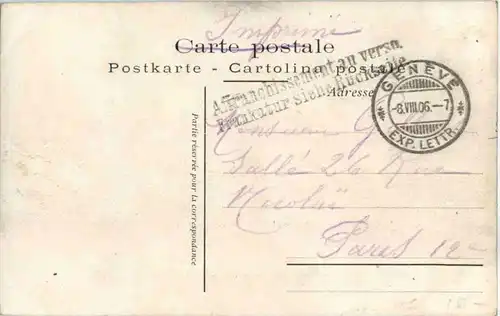 Imprimé
Carte postale
Postkarte - Cartolina postale
Affranchissement au verso.
Frankatur siehe Rückseite
Adresse
GENÈVE
-8.VIII.06.-7
EXP. LETTR.
Partie réservée pour la correspondance
Monsieur
Gallé 26 Rue
Nicolaï
Paris 12e